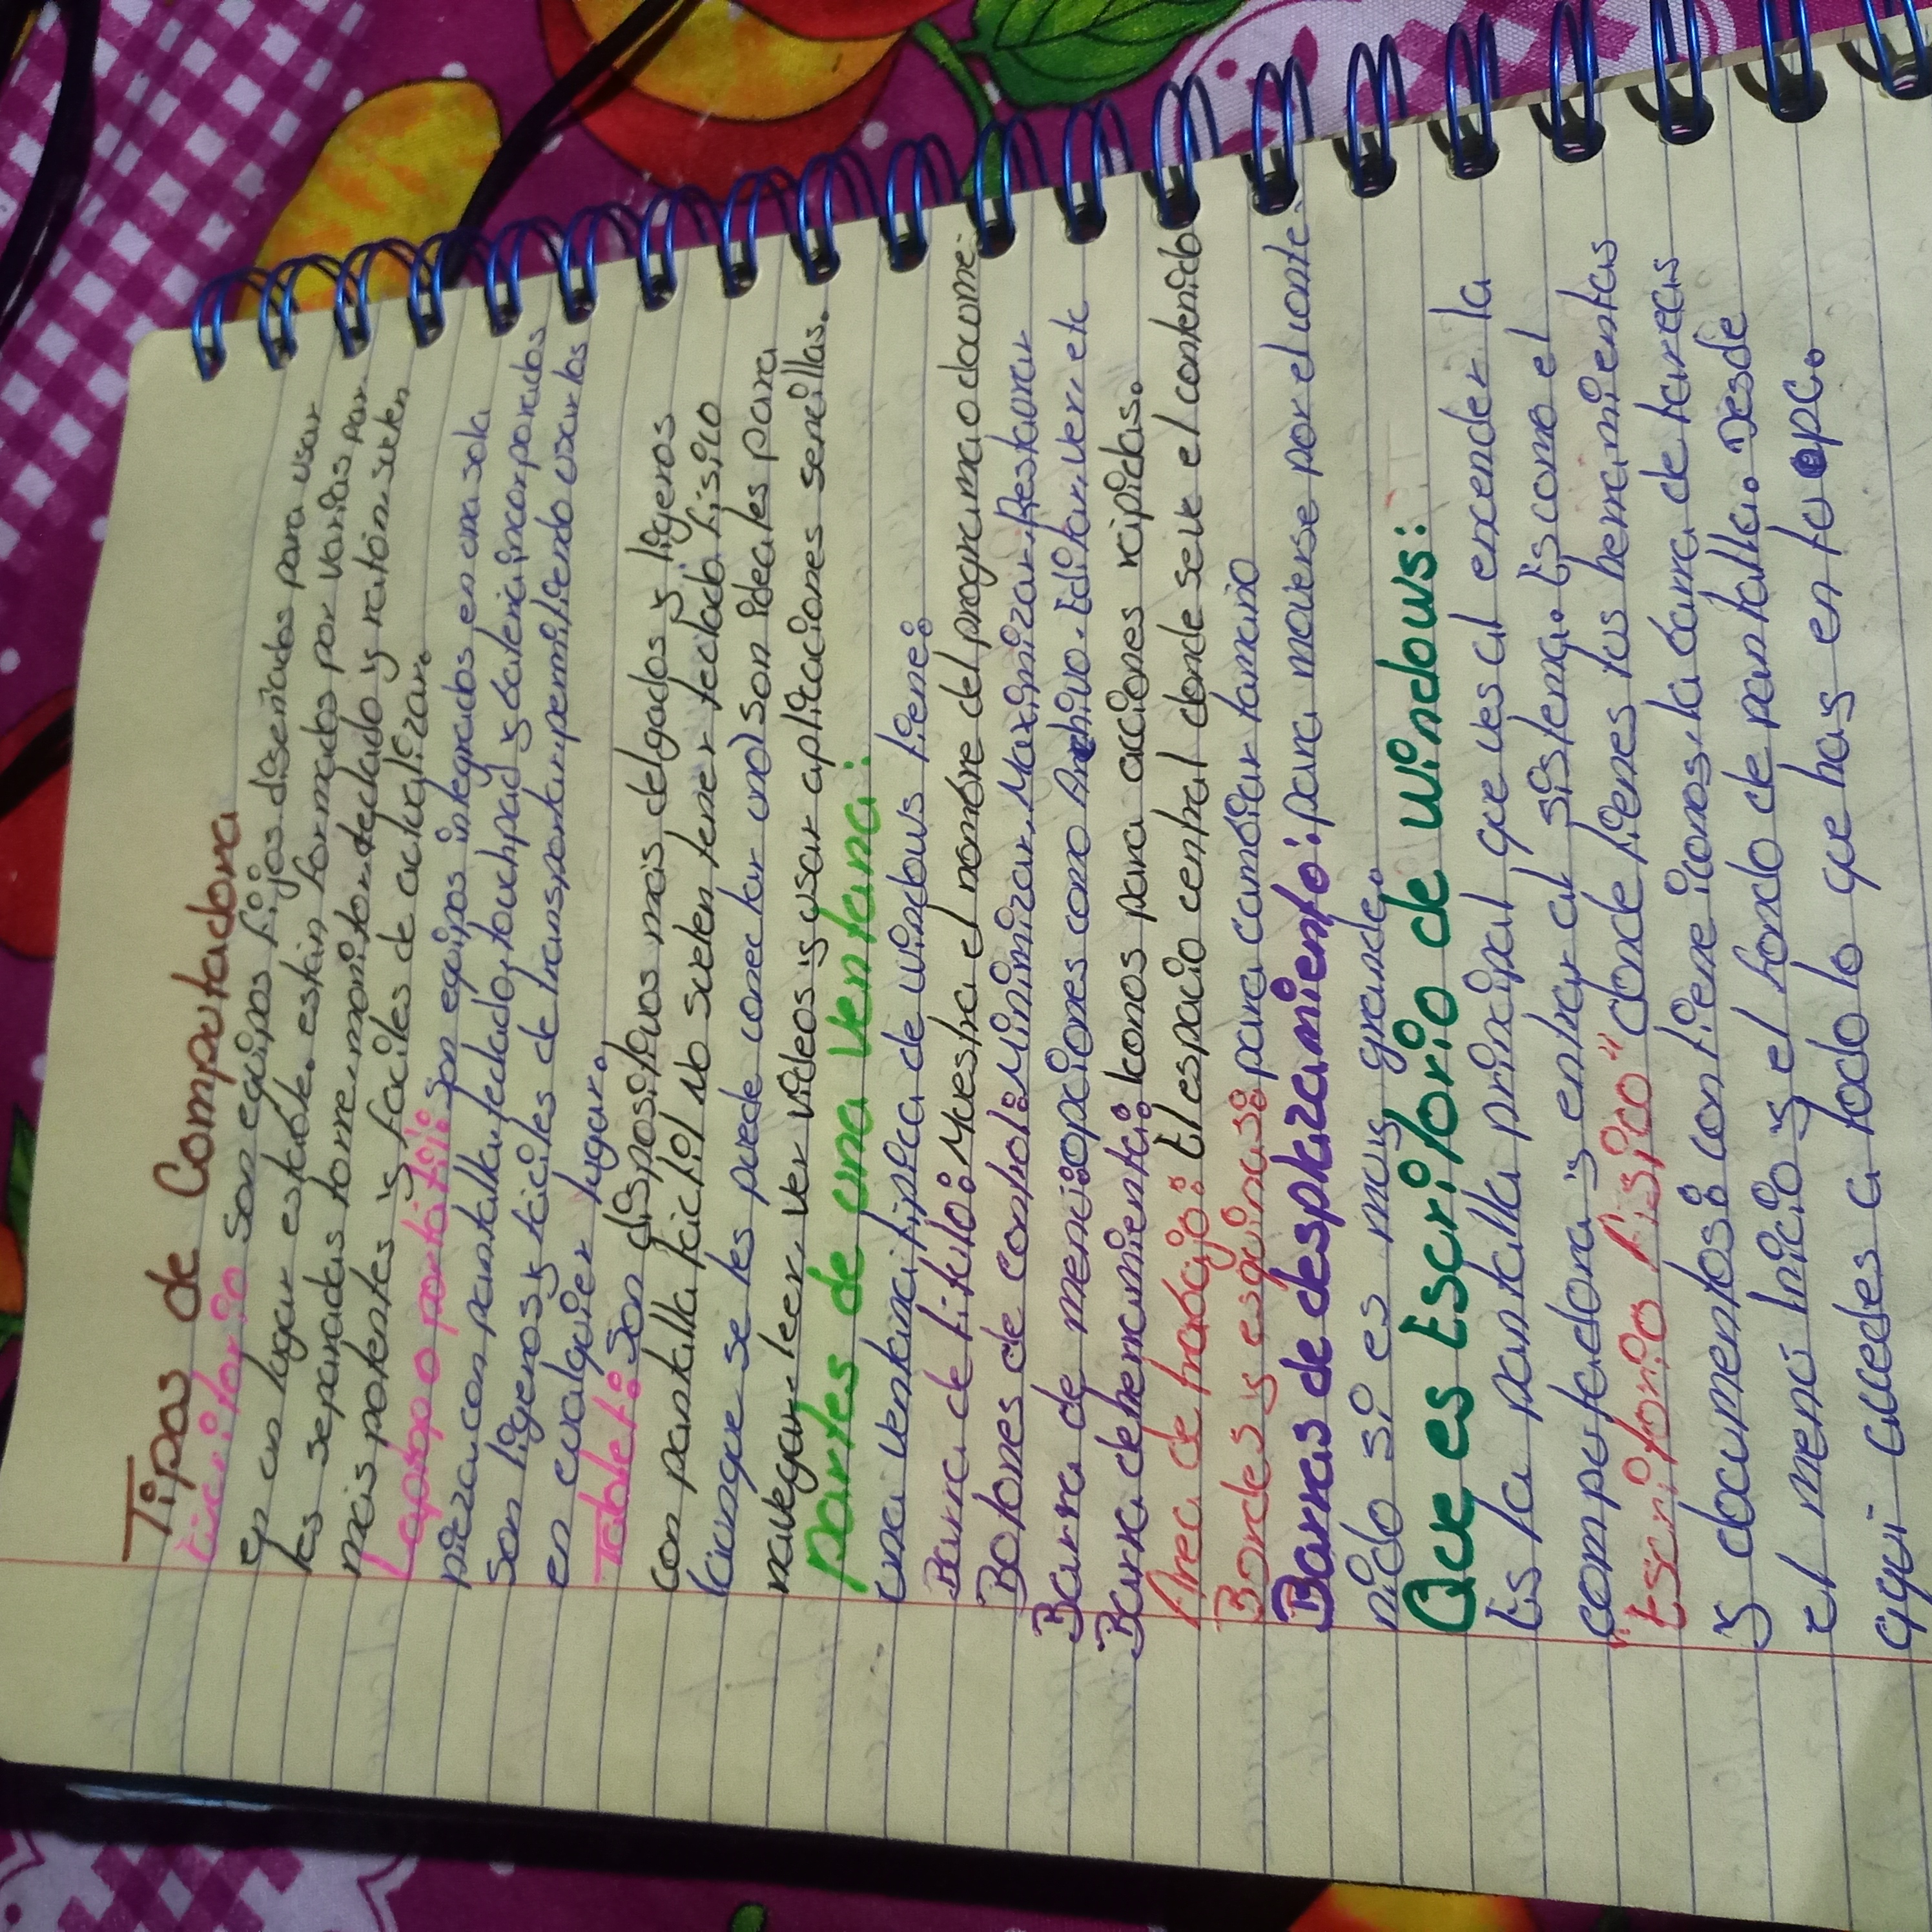 Tipos de Computadora
Escritorio son equipos fijos diseñados para usar
en un lugar estable. están formados por varias par-
tes separadas torre, monitor, teclado y ratón suelen
más potentes y faciles de actualizar.
Laptop o portátil: Son equipos integrados en una sola
pieza con pantalla, teclado, touchpad y batería incorporados
son ligeros y fáciles de transportar, permitiendo usarlos
en cualquier lugar.
Tablet: Son dispositivos más delgados y ligeros
con pantalla táctil No suelen tener teclado físico
(aunque se les puede conectar uno) son ideales para
navegar, leer, ver videos y usar aplicaciones sencillas.
partes de una ventana:
una ventana típica de windows tiene:
Barra de titulo: Muestra el nombre del programa o docume:
Botones de control: Minimizar, Maximizar, Restaurar
Barra de menú: opciones como Archivo. Editar, ver, etc
Barra deherramienta: Iconos para acciones rápidas.
Área de trabajo: El espacio central donde seve el contenido
Bordes y esquinas: para cambiar tamaño
Barras de desplazamiento: para moverse por el conte-
nido si es más grande.
Que es Escritorio de windows:
Es la pantalla principal que ves al encender la
computadora y entrar al sistema. Es como el
"Escritorio físico" donde tienes tus herramientas
y documentos: contiene iconos, la barra de tareas
el menú Inicio y el fondo de pantalla. Desde
aquí accedes a todo lo que has en tu pc.